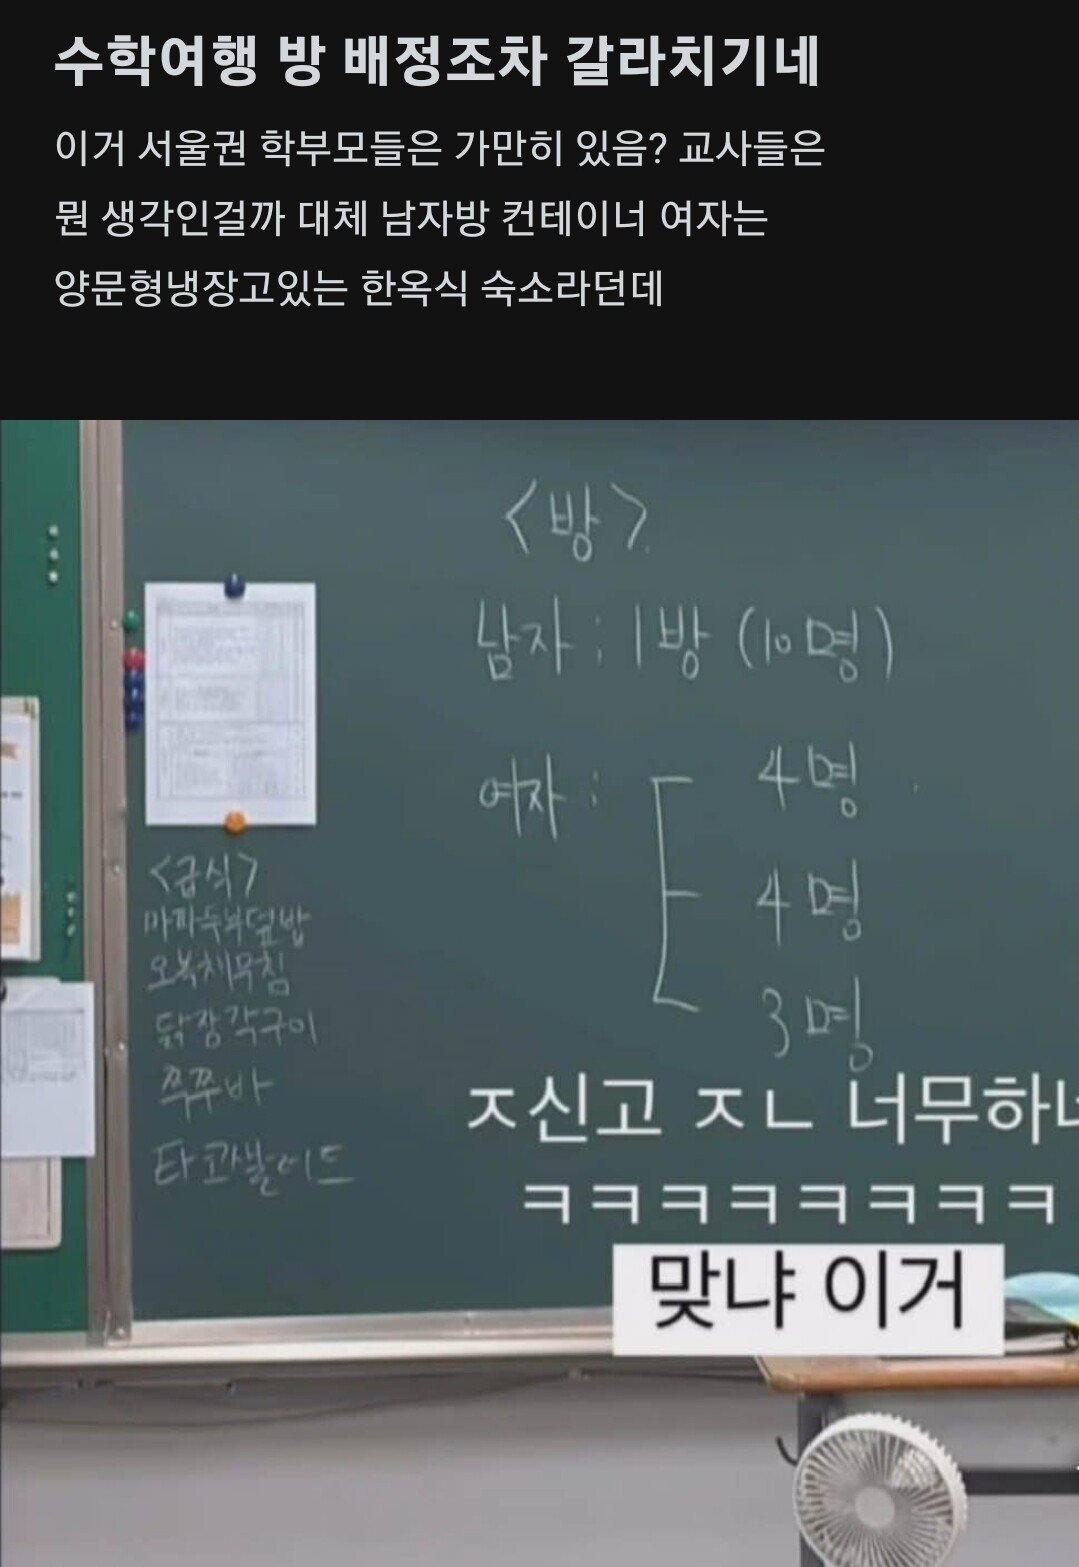 수학여행 방 배정조차 갈라치기네
이거 서울권 학부모들은 가만히 있음? 교사들은
뭔 생각인걸까 대체 남자방 컨테이너 여자는
양문형냉장고있는 한옥식 숙소라던데
<방>
남자 : 1방 (10명)
여자 : 4명
4명
3명
<급식>
마파두부덮밥
오복채무침
닭장각구이
쭈쭈바
타코샐러드
ㅈ신고 ㅈㄴ 너무하네
ㅋㅋㅋㅋㅋㅋㅋㅋ
맞냐 이거